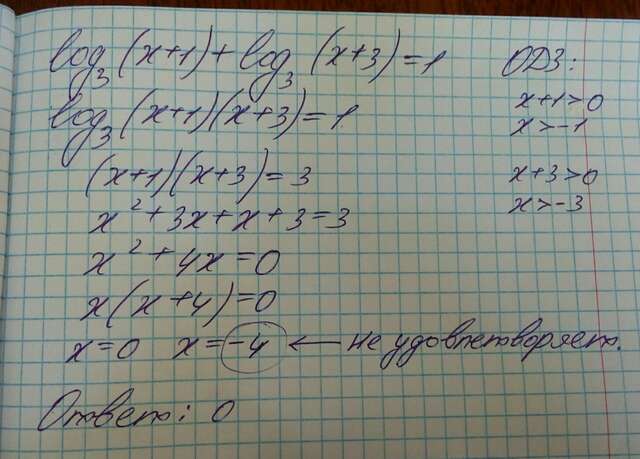 log₃(x+1)+log₃(x+3)=1
log₃(x+1)(x+3)=1
(x+1)(x+3)=3
x²+3x+x+3=3
x²+4x=0
x(x+4)=0
x=0 x=-4 ← не удовлетворяет.
Ответ: 0
ОДЗ:
x+1>0
x>-1
x+3>0
x>-3